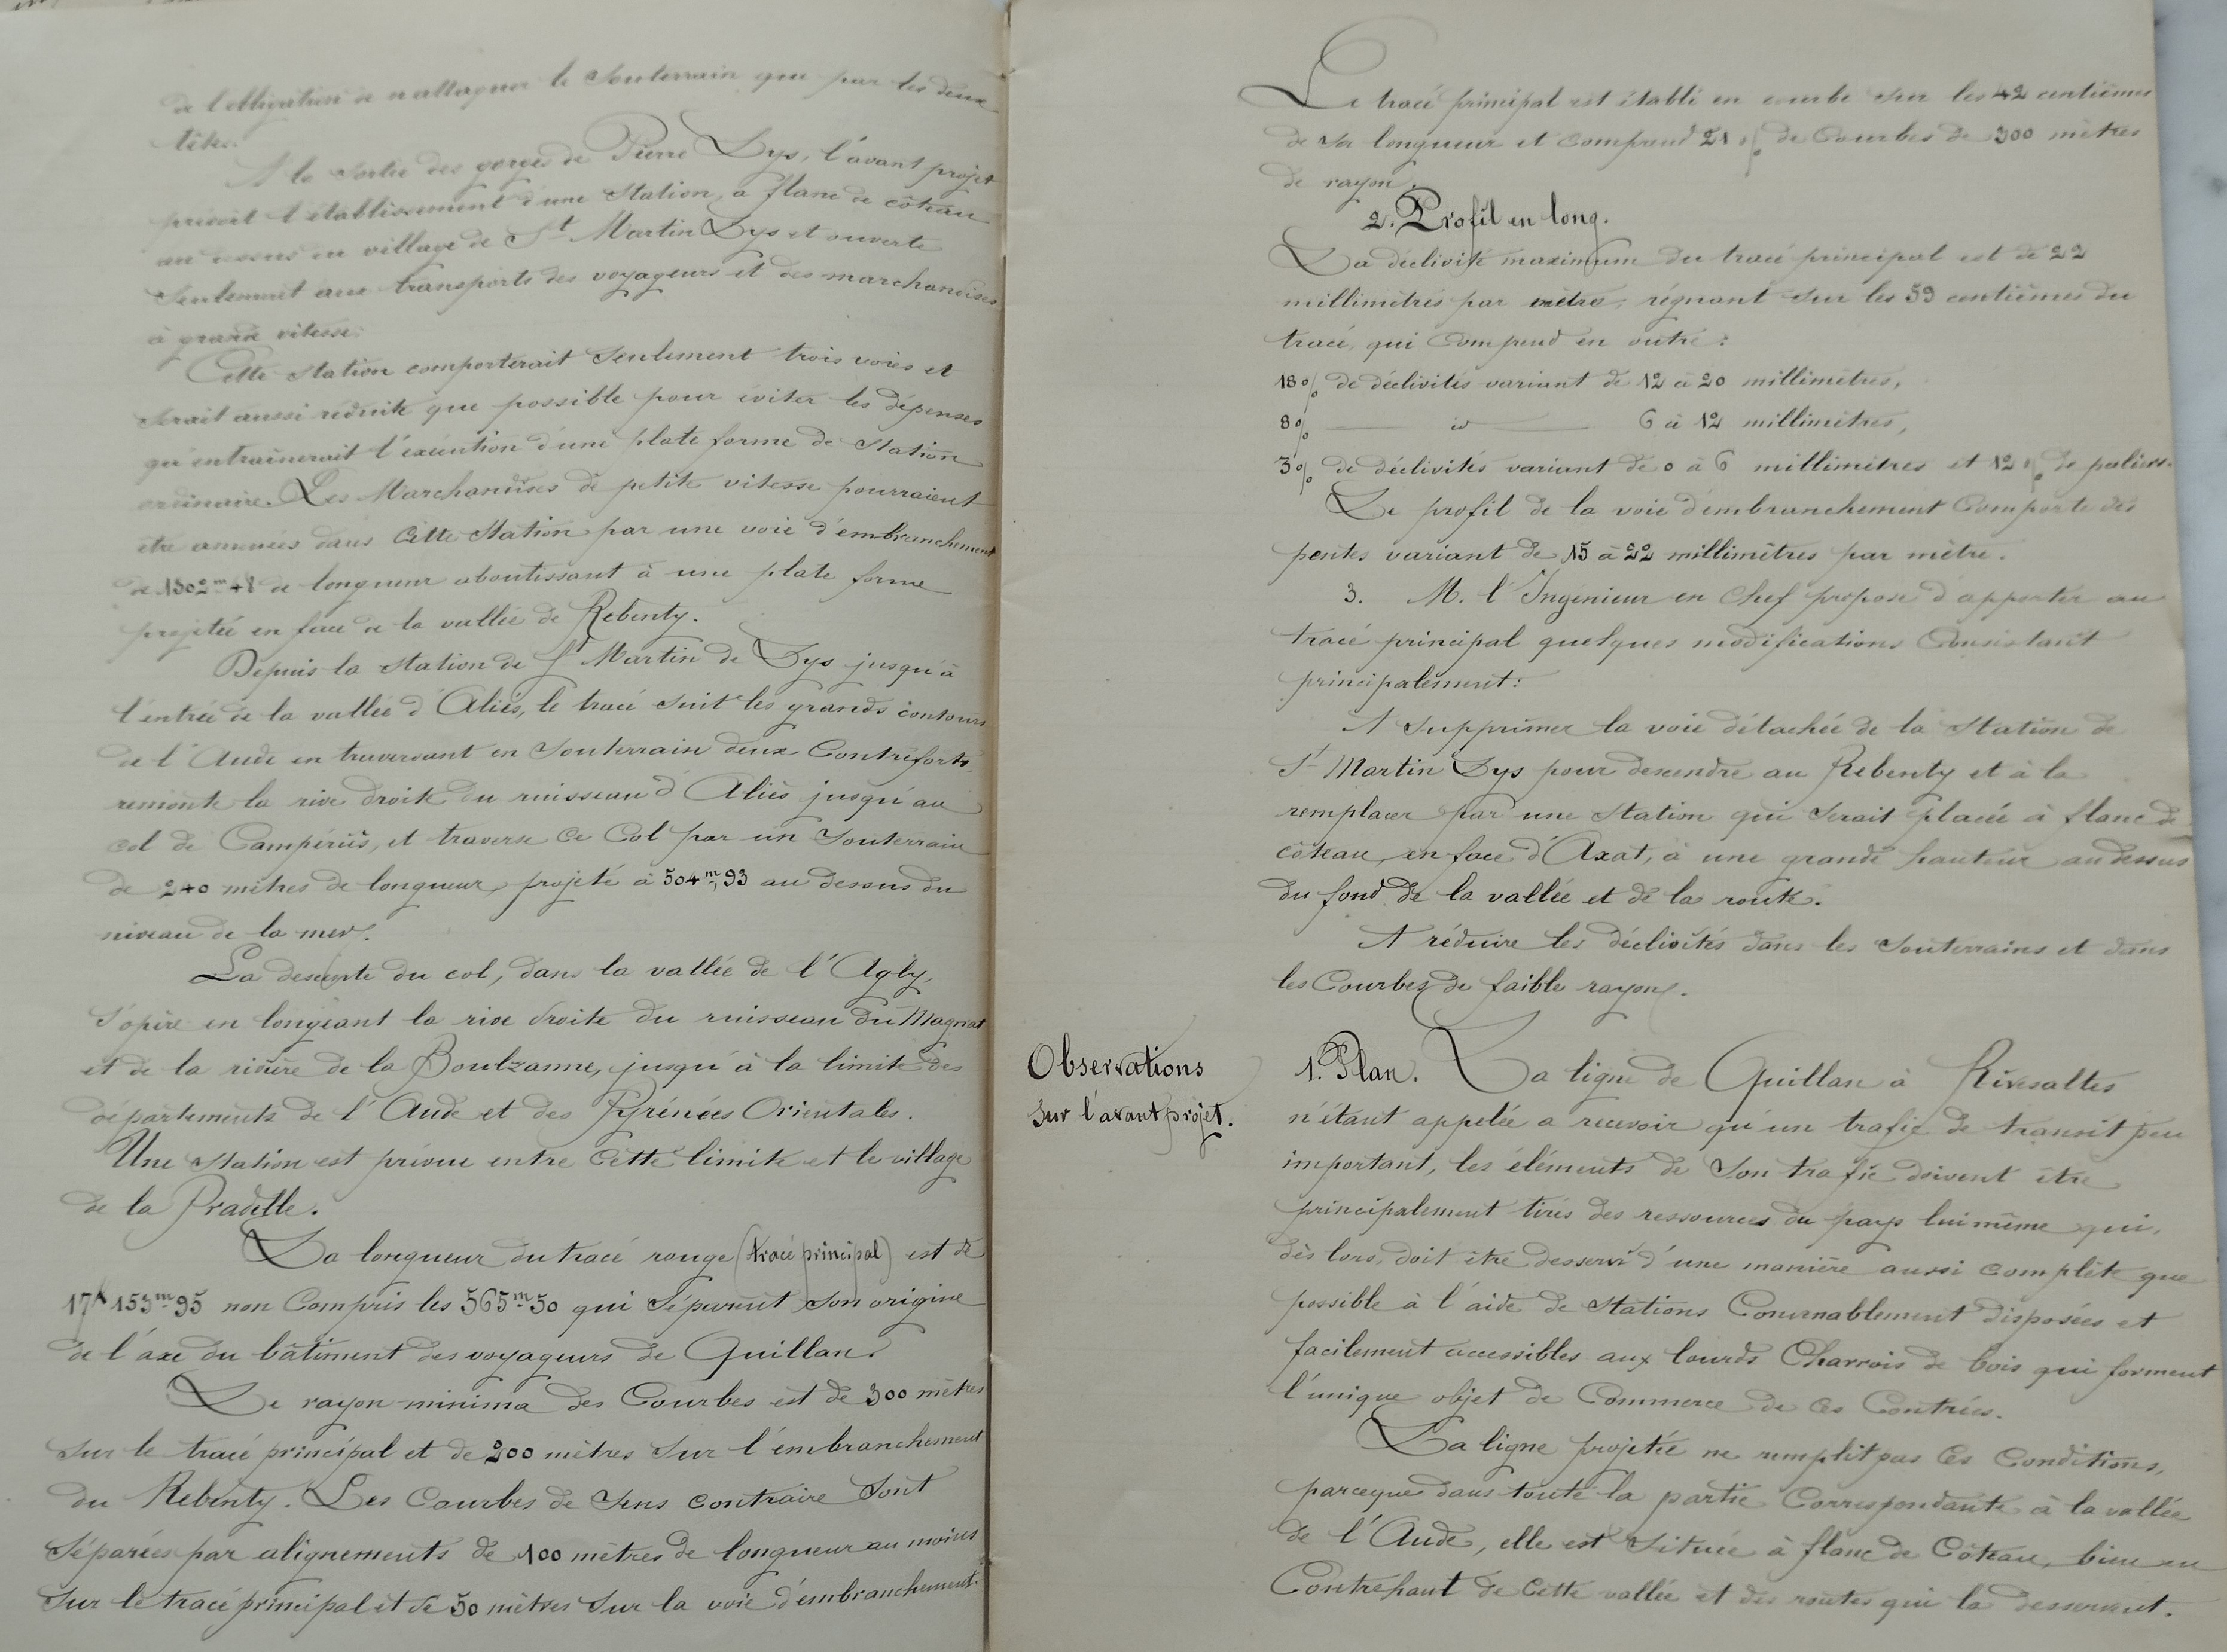 de l'obligation de n'attaquer le Souterrain que par les deux
têtes.
A la Sortie des gorges de Pierre Lys, l'avant projet
prévoit l'établissement d'une Station, a flanc de côteau
au dessus du village de St Martin Lys et ouverte
Seulement aux transports des voyageurs et des marchandises
à grande vitesse.
Cette Station comporterait Seulement trois voies et
Serait aussi réduite que possible pour éviter les dépenses
qu'entraînerait l'exécution d'une plate forme de Station
ordinaire. Les Marchandises de petite vitesse pourraient
être amenées dans Cette Station par une voie d'embranchement
de longueur aboutissant à une plate forme
projetée en face de la vallée de Rebenty.
Depuis la Station de St Martin de Lys jusqu'à
l'entrée de la vallée d'Aliès, le tracé Suit les grands contours
de l'Aude en traversant en Souterrain deux Contreforts,
remonte la rive droite du ruisseau d'Aliès jusqu'au
col de Campérié, et traverse ce Col par un Souterrain
de 240 mètres de longueur, projeté à 504m,93 au dessus du
niveau de la mer.
La descente du col, dans la vallée de l'Agly,
S'opère en longeant la rive droite du ruisseau du Magnat
et de la rivière de la Boulzanne, jusqu'à la limite des
départements de l'Aude et des Pyrénées Orientales.
Une Station est prévue entre Cette limite et le village
de la Pradelle.
La longueur du tracé rouge (tracé principal) est de
17k 153m95 non Compris les 565m50 qui Séparent Son origine
de l'axe du bâtiment des voyageurs de Quillan.
Le rayon minima des Courbes est de 300 mètres
Sur le tracé principal et de 200 mètres Sur l'embranchement
du Rebenty. Les Courbes de Sens contraire Sont
Séparées par alignements de 100 mètres de longueur au moins
Sur le tracé principal et de 50 mètres Sur la voie d'embranchement.
Le tracé principal est établi en courbe sur les 42 centièmes
de sa longueur et Comprend 21 % de Courbes de 300 mètres
de rayon.
2. Profil en long.
La déclivité maximum du tracé principal est de 22
millimètres par mètre, régnant Sur les 59 centièmes du
tracé, qui Comprend en outre :
18 % de déclivités variant de 12 à 20 millimètres,
8 % — id — 6 à 12 millimètres,
3 % de déclivités variant de 0 à 6 millimètres et 12 % de paliers.
Le profil de la voie d'embranchement Comporte des
pentes variant de 15 à 22 millimètres par mètre.
3. M. l'Ingénieur en Chef propose d'apporter au
tracé principal quelques modifications Consistant
principalement :
A Supprimer la voie détachée de la Station de
St Martin Lys pour descendre au Rebenty et à la
remplacer par une Station qui Serait placée à flanc de
côteau, en face d'Axat, à une grande hauteur au dessus
du fond de la vallée et de la route.
A réduire les déclivités dans les Souterrains et dans
les Courbes de faible rayon.
Observations
Sur l'avant projet.
1. Plan. La ligne de Quillan à Rivesaltes
n'étant appelée a recevoir qu'un trafic de transit peu
important, les éléments de Son trafic doivent être
principalement tirés des ressources du pays lui même qui,
dès lors, doit être desservi d'une manière aussi complète que
possible à l'aide de Stations Convenablement disposées et
facilement accessibles aux lourds Charrois de bois qui forment
l'unique objet de Commerce de Ces Contrées.
La ligne projetée ne remplit pas Ces Conditions,
parceque dans toute la partie Correspondante à la vallée
de l'Aude, elle est Située à flanc de Côteau, bien en
Contrehaut de Cette vallée et des routes qui la desservent.